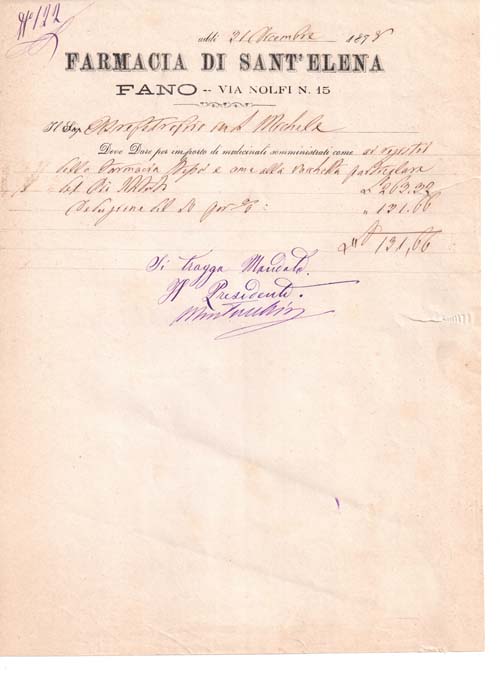 N° 122
addì 21 Dicembre 1878
FARMACIA DI SANT'ELENA
FANO -- VIA NOLFI N. 15
Il Sig. Orfanotrofio
Deve Dare per importo di medicinale somministrati come ai registri
della Farmacia e come alla vacchetta particolare
£ 263.32
Deduzione del 50 per % : " 131.66
£ 131,66
Si tragga Mandato.
Il Presidente.